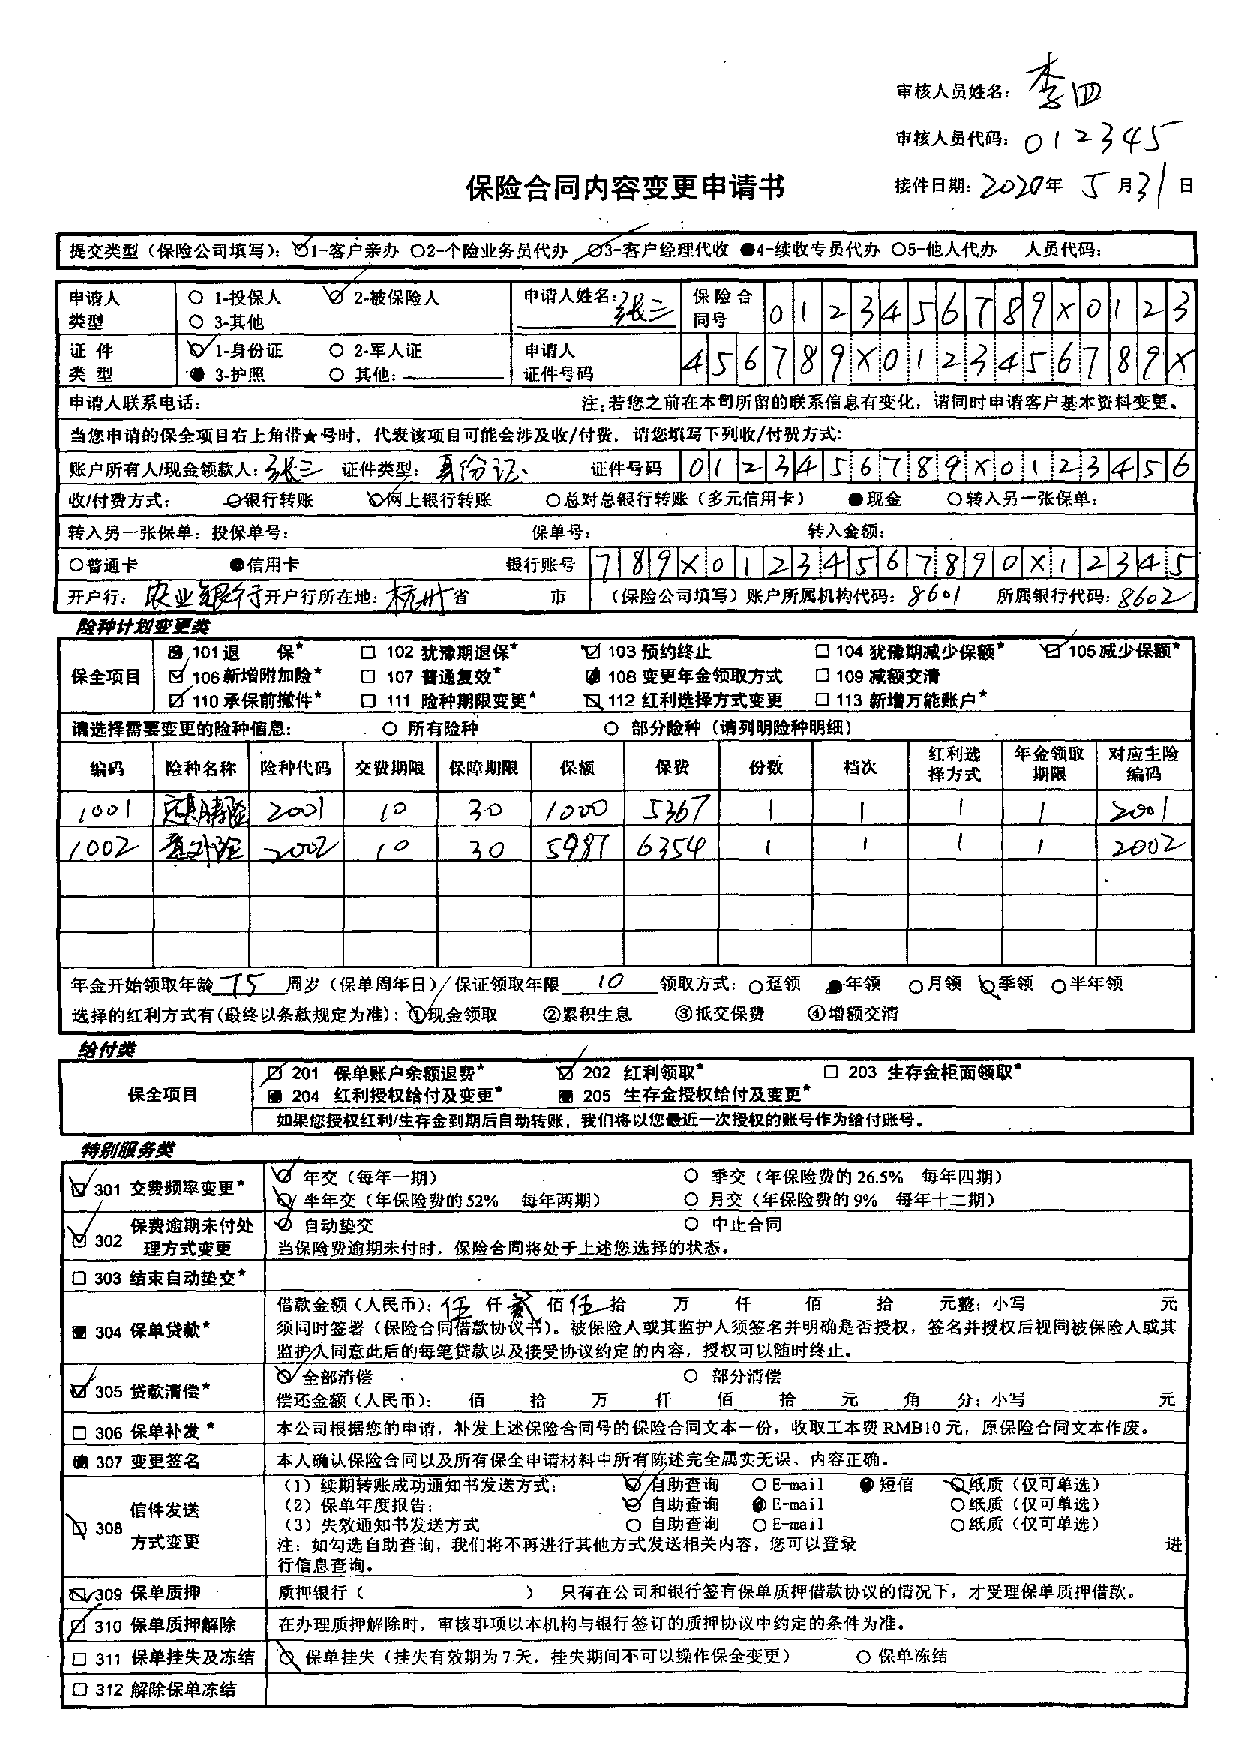 审核人员姓名：李四
审核人员代码：012345
保险合同内容变更申请书 接件日期：2020年 5月31日
提交类型（保险公司填写）：1-客户亲办 2-个险业务员代办 3-客户经理代收 4-续收专员代办 5-他人代办 人员代码：
申请人类型 1-投保人 2-被保险人 3-其他 申请人姓名：张三 保险合同号 0123456789X0123
证件类型 1-身份证 2-军人证 3-护照 其他： 申请人证件号码 456789X0123456789X
申请人联系电话： 注：若您之前在本司所留的联系信息有变化，请同时申请客户基本资料变更。
当您申请的保全项目右上角带★号时，代表该项目可能会涉及收/付费，请您填写下列收/付费方式：
账户所有人/现金领款人：张三 证件类型：身份证 证件号码 0123456789X0123456
收/付费方式： 银行转账 网上银行转账 总对总银行转账（多元信用卡） 现金 转入另一张保单：
转入另一张保单：投保单号： 保单号： 转入金额：
普通卡 信用卡 银行账号 789X01234567890X12345
开户行：农业银行 开户行所在地：杭州 省 市 （保险公司填写）账户所属机构代码：8601 所属银行代码：8602
险种计划变更类
保全项目
101 退 保* 102 犹豫期退保* 103 预约终止 104 犹豫期减少保额* 105 减少保额*
106 新增附加险* 107 普通复效* 108 变更年金领取方式 109 减额交清
110 承保前撤件* 111 险种期限变更* 112 红利选择方式变更 113 新增万能账户*
请选择需要变更的险种信息： 所有险种 部分险种（请列明险种明细）
编码 险种名称 险种代码 交费期限 保障期限 保额 保费 份数 档次 红利选择方式 年金领取期限 对应主险编码
1001 2001 10 30 1000 5367 1 1 1 1 2001
1002 意外险 2002 10 30 5987 6354 1 1 1 1 2002
年金开始领取年龄 75 周岁（保单周年日）/保证领取年限 10 领取方式：趸领 年领 月领 季领 半年领
选择的红利方式有(最终以条款规定为准)：①现金领取 ②累积生息 ③抵交保费 ④增额交清
给付类
保全项目
201 保单账户余额退费* 202 红利领取* 203 生存金柜面领取*
204 红利授权给付及变更* 205 生存金授权给付及变更*
如果您授权红利/生存金到期后自动转账，我们将以您最近一次授权的账号作为给付账号。
特别服务类
301 交费频率变更* 年交（每年一期） 季交（年保险费的26.5% 每年四期）
半年交（年保险费的52% 每年两期） 月交（年保险费的9% 每年十二期）
302 保费逾期未付处理方式变更 自动垫交 中止合同
当保险费逾期未付时，保险合同将处于上述您选择的状态。
303 结束自动垫交*
304 保单贷款* 借款金额（人民币）：伍仟贰佰伍拾 万 仟 佰 拾 元整；小写 元
须同时签署（保险合同借款协议书）。被保险人或其监护人须签名并明确是否授权，签名并授权后视同被保险人或其
监护人同意此后的每笔贷款以及接受协议约定的内容，授权可以随时终止。
305 贷款清偿* 全部清偿 部分清偿
偿还金额（人民币）： 佰 拾 万 仟 佰 拾 元 角 分；小写 元
306 保单补发* 本公司根据您的申请，补发上述保险合同号的保险合同文本一份，收取工本费RMB10元，原保险合同文本作废。
307 变更签名 本人确认保险合同以及所有保全申请材料中所有陈述完全属实无误、内容正确。
308 信件发送方式变更 （1）续期转账成功通知书发送方式： 自助查询 E-mail 短信 纸质（仅可单选）
（2）保单年度报告： 自助查询 E-mail 纸质（仅可单选）
（3）失效通知书发送方式 自助查询 E-mail 纸质（仅可单选）
注：如勾选自助查询，我们将不再进行其他方式发送相关内容，您可以登录 进
行信息查询。
309 保单质押 质押银行（ ） 只有在公司和银行签有保单质押借款协议的情况下，才受理保单质押借款。
310 保单质押解除 在办理质押解除时，审核事项以本机构与银行签订的质押协议中约定的条件为准。
311 保单挂失及冻结 保单挂失（挂失有效期为7天，挂失期间不可以操作保全变更） 保单冻结
312 解除保单冻结